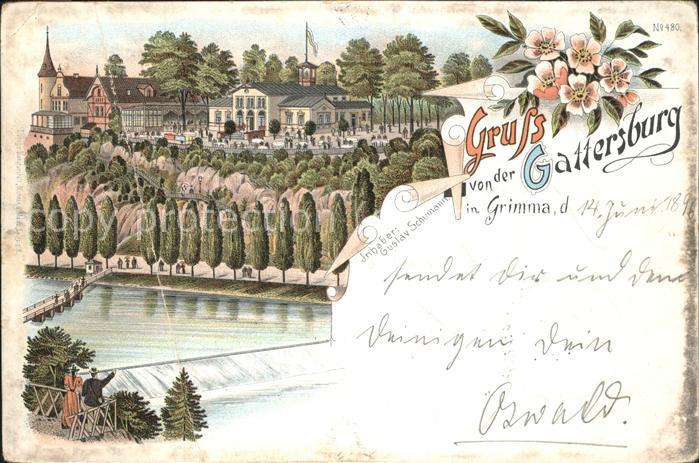 No 480.
Gruss
von der
Gattersburg
in Grimma, d 14. Juni 189
Inhaber:
Gustav Schumann
sendet Dir und den
Deinigen Dein
Oswald.
copyright protected